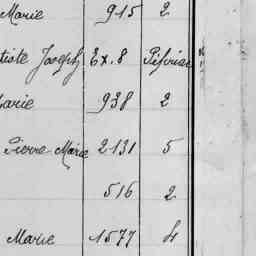 Marie 915 2
tiste Joseph Ex. 8
Marie 938 2
Pierre Marie 2131 5
516 2
Marie 1577 4